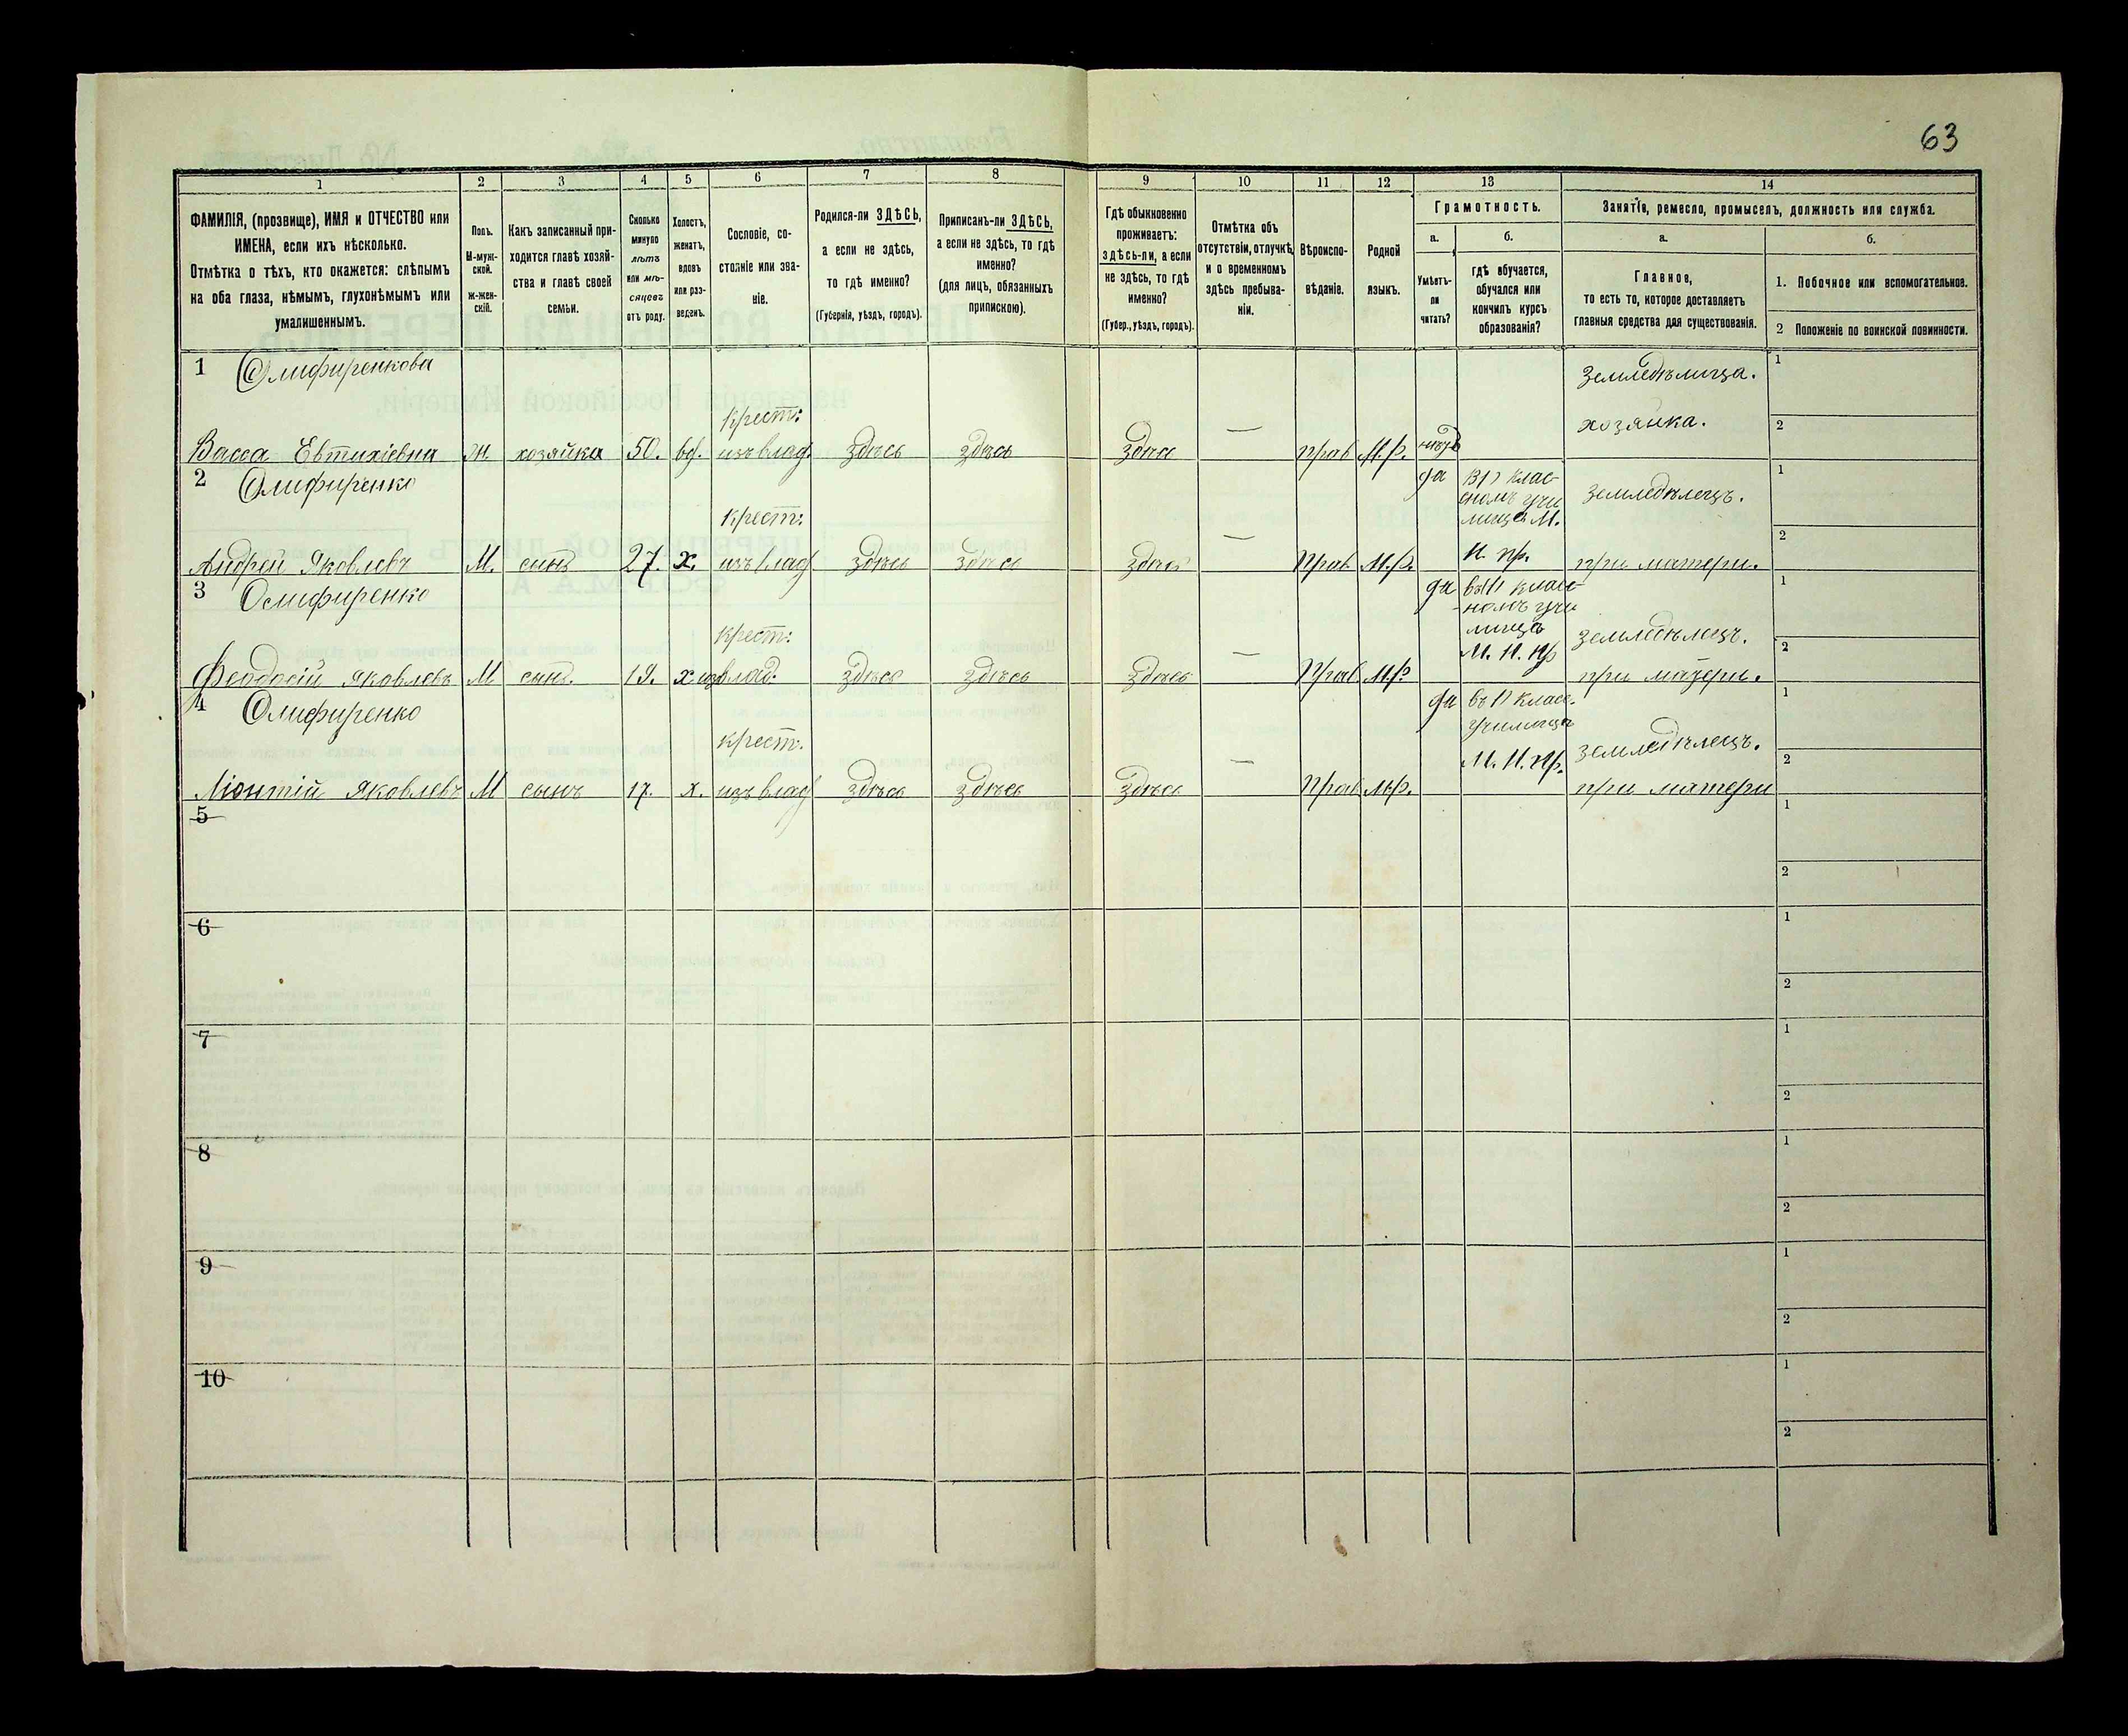 63
1 2 3 4 5 6 7 8 9 10 11 12 13 14
ФАМИЛІЯ, (прозвище), ИМЯ и ОТЧЕСТВО или
ИМЕНА, если ихъ нѣсколько.
Отмѣтка о тѣхъ, кто окажется: слѣпымъ
на оба глаза, нѣмымъ, глухонѣмымъ или
умалишеннымъ.
Полъ.
М-муж-
ской.
ж-жен-
скій.
Какъ записанный при-
ходится главѣ хозяй-
ства и главѣ своей
семьи.
Сколько
минуло
лѣтъ
или мѣ-
сяцевъ
отъ роду.
Холостъ,
женатъ,
вдовъ
или раз-
веденъ.
Сословіе, со-
стояніе или зва-
ніе.
Родился-ли ЗДѢСЬ,
а если не здѣсь,
то гдѣ именно?
(Губернія, уѣздъ, городъ).
Приписанъ-ли ЗДѢСЬ,
а если не здѣсь, то гдѣ
именно?
(для лицъ, обязанныхъ
припискою).
Гдѣ обыкновенно
проживаетъ:
здѣсь-ли, а если
не здѣсь, то гдѣ
именно?
(Губер., уѣздъ, городъ).
Отмѣтка объ
отсутствіи, отлучкѣ
и о временномъ
здѣсь пребыва-
ніи.
Вѣроиспо-
вѣданіе.
Родной
языкъ.
Грамотность.
а.
Умѣетъ-
ли
читать?
б.
гдѣ обучается,
обучался или
кончилъ курсъ
образованія?
Занятіе, ремесло, промыселъ, должность или служба.
а.
Главное,
то есть то, которое доставляетъ
главныя средства для существованія.
б.
1. Побочное или вспомогательное.
2 Положеніе по воинской повинности.
1 Олифиренкова Земледѣлица. 1
крест: хозяйка. 2
Васса Евтихіевна Ж. хозяйка 50. вд. изъ влад здѣсь здѣсь здѣсь — прав М.р. нѣтъ
2 Олифиренко да клас- 1
сномъ учи земледѣлецъ.
крест: лищѣ М. 2
Андрей Яковлевъ М. сынъ 27. х. изъ влад здѣсь здѣсь здѣсь — Прав М.р. Н. пр. при матери.
3 Олифиренко да клас- 1
номъ учи
крест: лищѣ земледѣлецъ. 2
М. Н. пр
Феодосій Яковлевъ М сынъ. 19. х изъ влад. здѣсь здѣсь здѣсь — Прав М.р. при матери.
4 Олифиренко да въ класс. 1
училищѣ
крест. М. Н. Пр. земледѣлецъ. 2
Ліонтій Яковлевъ М сынъ 17. х. изъ влад здѣсь здѣсь здѣсь — Прав М.р. при матери
5 1
2
6 1
2
7 1
2
8 1
2
9 1
2
10 1
2